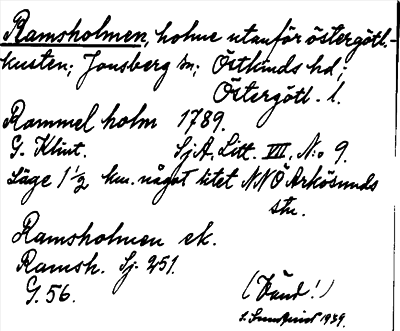 Ramsholmen, holme utanför östergötl.-
kusten; Jonsberg sn; Östkinds hd;
Östergötl. l.
Rammel holm 1789.
G. Klint. SjA. Litt. VIII. N:o 9.
Läge 1 1/2 km. något litet NNÖ Arkösunds
stn.
Ramsholmen ek.
Ramsh. Sj. 251.
G. 56.
(Känd!)
1939.